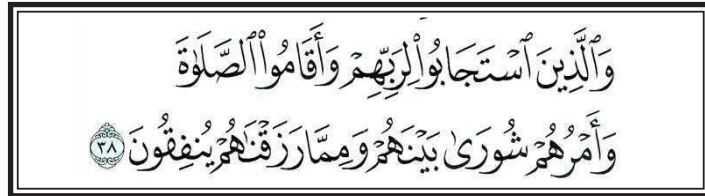 وَٱلَّذِينَ ٱسۡتَجَابُواْ لِرَبِّهِمۡ وَأَقَامُواْ ٱلصَّلَوٰةَ
وَأَمۡرُهُمۡ شُورَىٰ بَيۡنَهُمۡ وَمِمَّا رَزَقۡنَٰهُمۡ يُنفِقُونَ ٣٨